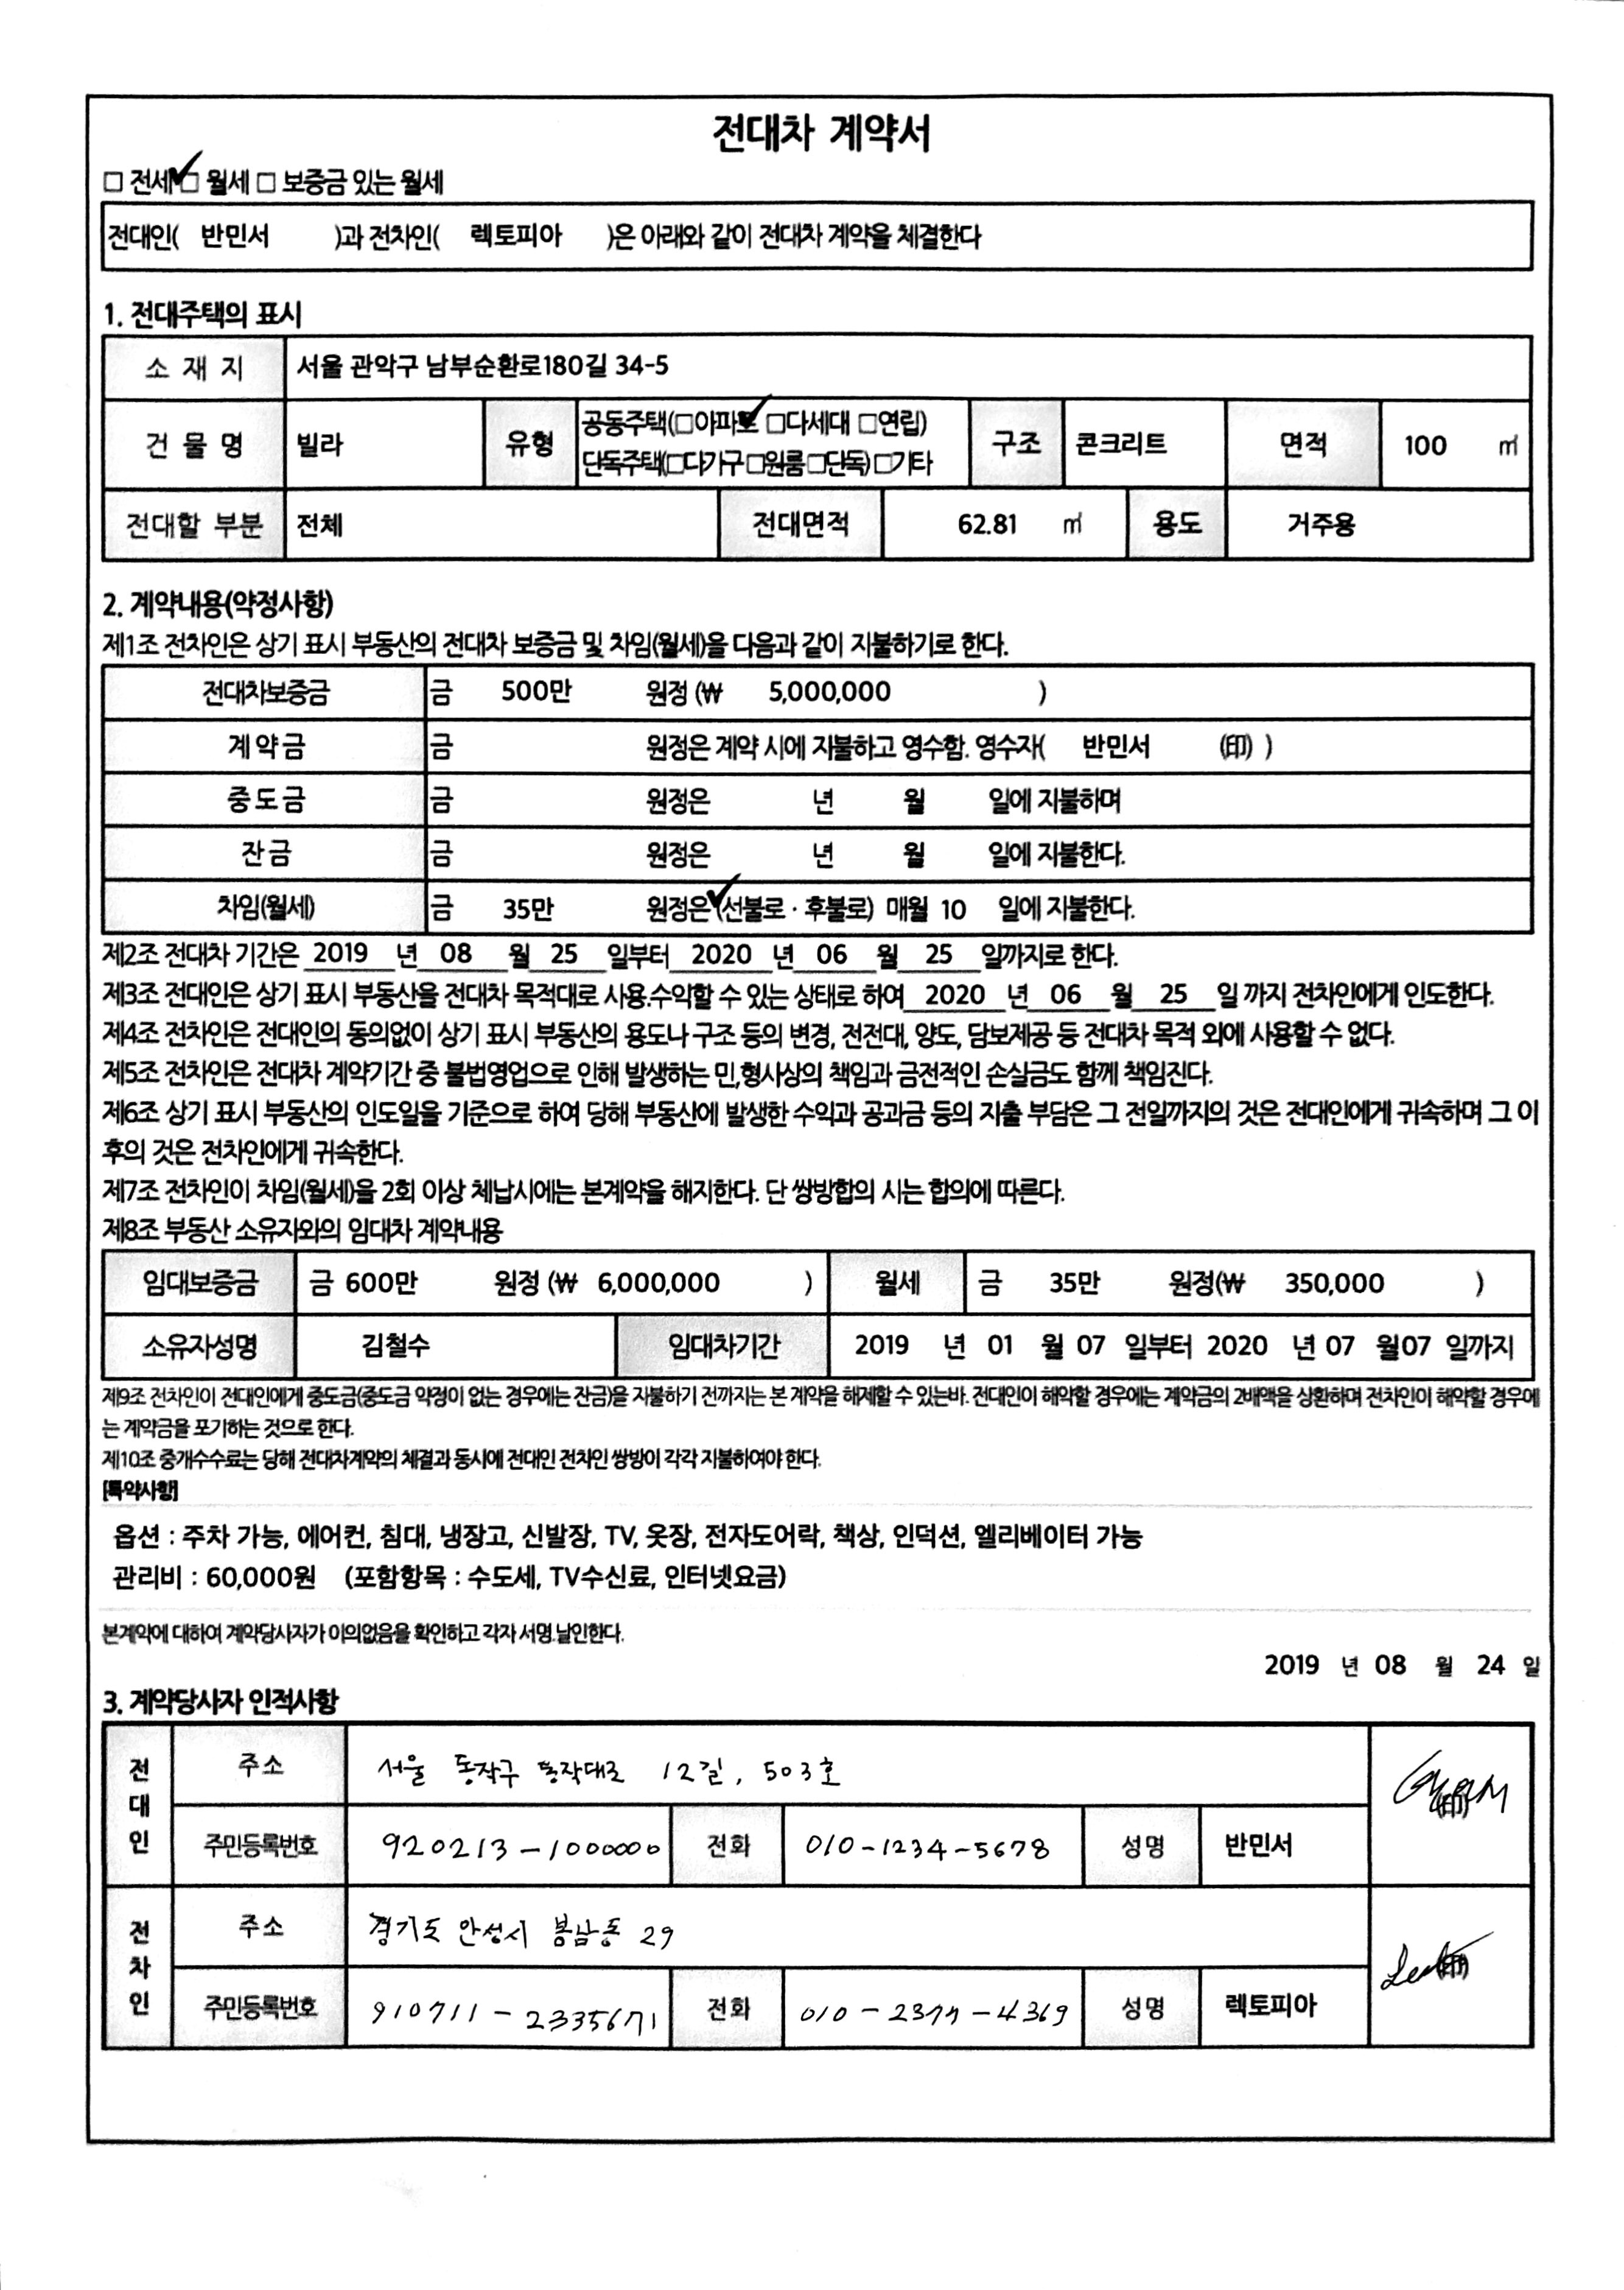 전대차 계약서
□ 전세 ✓□ 월세 □ 보증금 있는 월세
전대인( 반민서 )과 전차인( 렉토피아 )은 아래와 같이 전대차 계약을 체결한다
1. 전대주택의 표시
소 재 지 서울 관악구 남부순환로180길 34-5
건 물 명 빌라 유형 공동주택(□아파트 ✓□다세대 □연립) 구조 콘크리트 면적 100 ㎡
단독주택(□다가구 □원룸 □단독) □기타
전대할 부분 전체 전대면적 62.81 ㎡ 용도 거주용
2. 계약내용(약정사항)
제1조 전차인은 상기 표시 부동산의 전대차 보증금 및 차임(월세)을 다음과 같이 지불하기로 한다.
전대차보증금 금 500만 원정 (₩ 5,000,000 )
계 약 금 금 원정은 계약 시에 지불하고 영수함. 영수자( 반민서 (印) )
중 도 금 금 원정은 년 월 일에 지불하며
잔 금 금 원정은 년 월 일에 지불한다.
차임(월세) 금 35만 원정은 ✓(선불로 · 후불로) 매월 10 일에 지불한다.
제2조 전대차 기간은 2019 년 08 월 25 일부터 2020 년 06 월 25 일까지로 한다.
제3조 전대인은 상기 표시 부동산을 전대차 목적대로 사용.수익할 수 있는 상태로 하여 2020 년 06 월 25 일 까지 전차인에게 인도한다.
제4조 전차인은 전대인의 동의없이 상기 표시 부동산의 용도나 구조 등의 변경, 전전대, 양도, 담보제공 등 전대차 목적 외에 사용할 수 없다.
제5조 전차인은 전대차 계약기간 중 불법영업으로 인해 발생하는 민,형사상의 책임과 금전적인 손실금도 함께 책임진다.
제6조 상기 표시 부동산의 인도일을 기준으로 하여 당해 부동산에 발생한 수익과 공과금 등의 지출 부담은 그 전일까지의 것은 전대인에게 귀속하며 그 이
후의 것은 전차인에게 귀속한다.
제7조 전차인이 차임(월세)을 2회 이상 체납시에는 본계약을 해지한다. 단 쌍방합의 시는 합의에 따른다.
제8조 부동산 소유자와의 임대차 계약내용
임대보증금 금 600만 원정 (₩ 6,000,000 ) 월세 금 35만 원정(₩ 350,000 )
소유자성명 김철수 임대차기간 2019 년 01 월 07 일부터 2020 년 07 월07 일까지
제9조 전차인이 전대인에게 중도금(중도금 약정이 없는 경우에는 잔금)을 지불하기 전까지는 본 계약을 해제할 수 있는바. 전대인이 해약할 경우에는 계약금의 2배액을 상환하며 전차인이 해약할 경우에
는 계약금을 포기하는 것으로 한다.
제10조 중개수수료는 당해 전대차계약의 체결과 동시에 전대인 전차인 쌍방이 각각 지불하여야 한다.
[특약사항]
옵션 : 주차 가능, 에어컨, 침대, 냉장고, 신발장, TV, 옷장, 전자도어락, 책상, 인덕션, 엘리베이터 가능
관리비 : 60,000원 (포함항목 : 수도세, TV수신료, 인터넷요금)
본계약에 대하여 계약당사자가 이의없음을 확인하고 각자 서명.날인한다.
2019 년 08 월 24 일
3. 계약당사자 인적사항
전대인 주소 서울 동작구 동작대로 12길, 503호 (印)
주민등록번호 920213-1000000 전화 010-1234-5678 성명 반민서
전차인 주소 경기도 안성시 봉남동 29 (印)
주민등록번호 910711-2335671 전화 010-2377-4369 성명 렉토피아